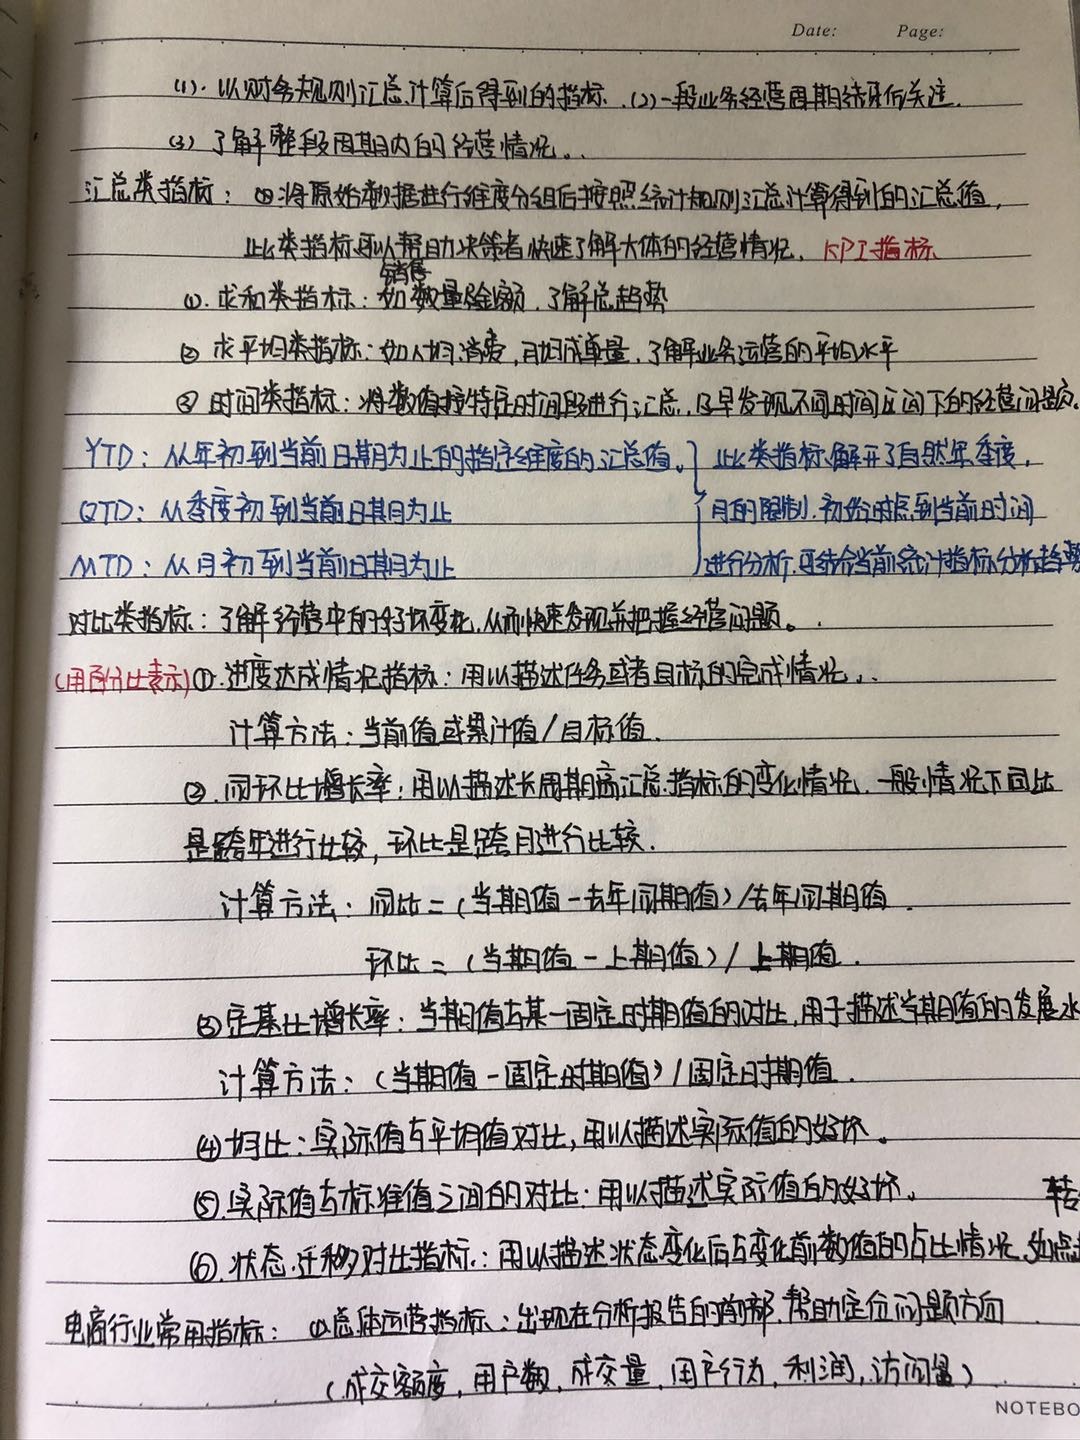 Date: Page:
(1). 以财务规则汇总计算后得到的指标. (2)一般业务经营周期结束后关注.
(3) 了解整段周期内的经营情况。
汇总类指标: ①将原始数据进行维度分组后按照统计规则汇总计算得到的汇总值,
此类指标可以帮助决策者快速了解大体的经营情况. KPI指标
销售
①. 求和类指标: 如数量金额, 了解总趋势
② 求平均类指标: 如人均消费, 月均成单量, 了解业务运营的平均水平
③ 时间类指标: 将数值按特定时间段进行汇总, 及早发现不同时间区间下的经营问题。
YTD: 从年初到当前日期为止的指定维度的汇总值。 此类指标解开了自然年季度,
QTD: 从季度初到当前日期为止 月的限制. 初始时点到当前时间
MTD: 从月初到当前日期为止 进行分析, 要结合当前统计指标分析趋势
对比类指标: 了解经营中的好坏变化, 从而快速发现并把握经营问题。
(用百分比表示) ①.进度达成情况指标: 用以描述任务或者目标的完成情况.
计算方法: 当前值或累计值/目标值.
②. 同环比增长率: 用以描述长周期汇总指标的变化情况. 一般情况下同比
是跨年进行比较, 环比是跨月进行比较.
计算方法: 同比=(当期值-去年同期值)/去年同期值.
环比=(当期值-上期值)/上期值.
③定基比增长率: 当期值与某一固定时期值的对比, 用于描述当期值的发展水
计算方法: (当期值-固定时期值)/固定时期值.
④均比: 实际值与平均值对比, 用以描述实际值的好坏。
⑤.实际值与标准值之间的对比: 用以描述实际值的好坏。 转
⑥. 状态迁移对比指标: 用以描述状态变化后与变化前数值的占比情况. 如点击
电商行业常用指标: ①总体运营指标: 出现在分析报告的前部. 帮助定位问题方向
(成交额度, 用户数, 成交量, 用户行为, 利润, 访问量)
NOTEBO